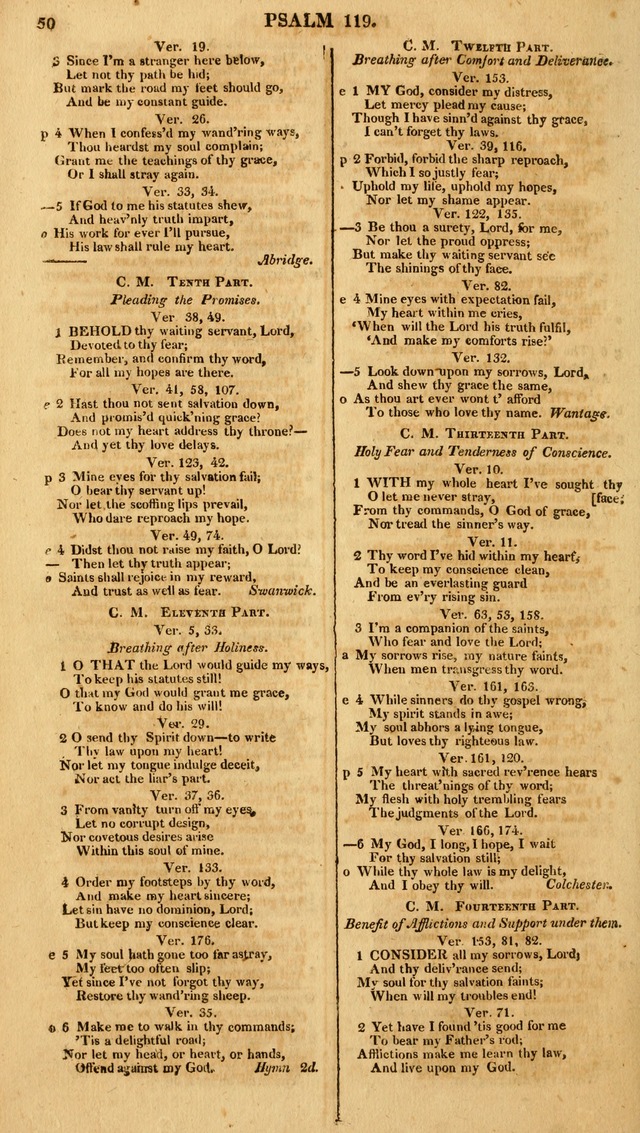 50
PSALM 119.
Ver. 19.
3 Since I'm a stranger here below,
Let not thy path be hid;
But mark the road my feet should go,
And be my constant guide.
Ver. 26.
p 4 When I confess'd my wand'ring ways,
Thou heardst my soul complain;
Grant me the teachings of thy grace,
Or I shall stray again.
Ver. 33, 34.
—5 If God to me his statutes shew,
And heav'nly truth impart,
o His work for ever I'll pursue,
His law shall rule my heart.
Abridge.
C. M. TENTH PART.
Pleading the Promises.
Ver 38, 49.
1 BEHOLD thy waiting servant, Lord,
Devoted to thy fear;
Remember, and confirm thy word,
For all my hopes are there.
Ver. 41, 58, 107.
e 2 Hast thou not sent salvation down,
And promis'd quick'ning grace?
Does not my heart address thy throne?—
And yet thy love delays.
Ver. 123, 42.
p 3 Mine eyes for thy salvation fail;
O bear thy servant up!
Nor let the scoffing lips prevail,
Who dare reproach my hope.
Ver. 49, 74.
e 4 Didst thou not raise my faith, O Lord?
— Then let thy truth appear;
o Saints shall rejoice in my reward,
And trust as well as fear. Swanwick.
C. M. ELEVENTH PART.
Ver. 5, 33.
Breathing after Holiness.
1 O THAT the Lord would guide my ways,
To keep his statutes still!
O that my God would grant me grace,
To know and do his will!
Ver. 29.
2 O send thy Spirit down—to write
Thy law upon my heart!
Nor let my tongue indulge deceit,
Nor act the liar's part.
Ver. 37, 36.
3 From vanity turn off my eyes,
Let no corrupt design,
Nor covetous desires arise
Within this soul of mine.
Ver. 133.
4 Order my footsteps by thy word,
And make my heart sincere;
Let sin have no dominion, Lord;
But keep my conscience clear.
Ver. 176.
e 5 My soul hath gone too far astray,
My feet too often slip;
Yet since I've not forgot thy way,
Restore thy wand'ring sheep.
Ver. 35.
o 6 Make me to walk in thy commands;
'Tis a delightful road;
Nor let my head, or heart, or hands,
Offend against my God. Hymn 2d.
C. M. TWELFTH PART.
Breathing after Comfort and Deliverance.
Ver. 153.
e 1 MY God, consider my distress,
Let mercy plead my cause;
Though I have sinn'd against thy grace,
I can't forget thy laws.
Ver. 39, 116.
p 2 Forbid, forbid the sharp reproach,
Which I so justly fear;
Uphold my life, uphold my hopes,
Nor let my shame appear.
Ver. 122, 135.
—3 Be thou a surety, Lord, for me,
Nor let the proud oppress;
But make thy waiting servant see
The shinings of thy face.
Ver. 82.
e 4 Mine eyes with expectation fail,
My heart within me cries,
'When will the Lord his truth fulfil,
'And make my comforts rise?'
Ver. 132.
—5 Look down upon my sorrows, Lord,
And shew thy grace the same,
o As thou art ever wont t' afford
To those who love thy name. Wantage.
C. M. THIRTEENTH PART.
Holy Fear and Tenderness of Conscience.
Ver. 10.
1 WITH my whole heart I've sought thy
O let me never stray, [face;
From thy commands, O God of grace,
Nor tread the sinner's way.
Ver. 11.
2 Thy word I've hid within my heart;
To keep my conscience clean,
And be an everlasting guard
From ev'ry rising sin.
Ver. 63, 53, 158.
3 I'm a companion of the saints,
Who fear and love the Lord;
a My sorrows rise, my nature faints,
When men transgress thy word.
Ver. 161, 163.
e 4 While sinners do thy gospel wrong,
My spirit stands in awe;
My soul abhors a lying tongue,
But loves thy righteous law.
Ver. 161, 120.
p 5 My heart with sacred rev'rence hears
The threat'nings of thy word;
My flesh with holy trembling fears
The judgments of the Lord.
Ver 166, 174.
—6 My God, I long, I hope, I wait
For thy salvation still;
o While thy whole law is my delight,
And I obey thy will. Colchester.
C. M. FOURTEENTH PART.
Benefit of Afflictions and Support under them.
Ver. 153, 81, 82.
1 CONSIDER all my sorrows, Lord,
And thy deliv'rance send;
My soul for thy salvation faints;
When will my troubles end!
Ver. 71.
2 Yet have I found 'tis good for me
To bear my Father's rod;
Afflictions make me learn thy law,
And live upon my God.